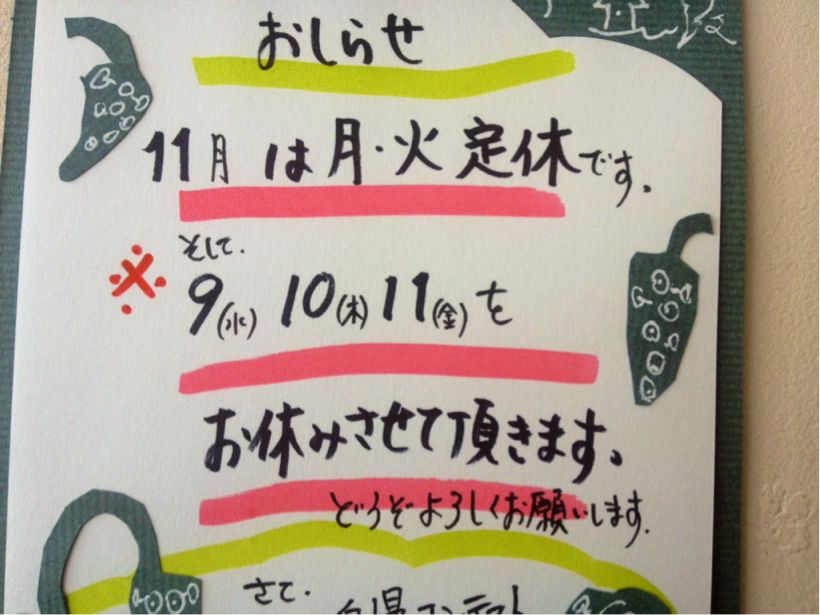 おしらせ
11月は月・火定休です。
そして.
※ 9(水) 10(木) 11(金)を
お休みさせて頂きます。
どうぞよろしくお願いします.
さて.